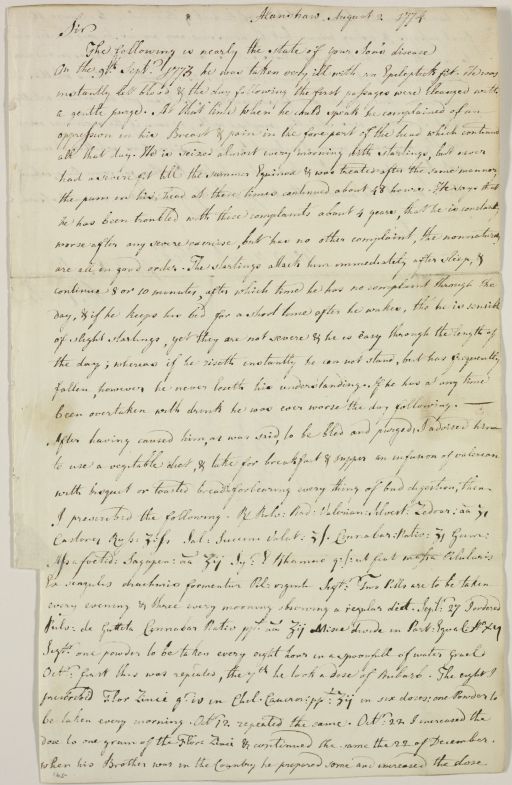 Alanshaw August 2. 1774
Sir
The following is nearly the state of your Son's disease
On the 9th Septr. 1773 he was taken very ill with an Epileptick fit. He was
instantly let blood & the day following the first passages were cleansed with
a gentle purge. At that time when he could speak he complained of an
oppression in his Breast & pain in the forepart of the head which continued
all that day. He is seized almost every morning with startings, but never
had a severe fit till the summer Equinox & was treated after the same manner,
the pain in his head at these times continued about 48 hours. He says that
he has been troubled with these complaints about 4 years, that he is constantly
worse after any severe exercise, but has no other complaint, the nonnaturals
are all in good order. The startings attack him immediately after sleep, &
continue 8 or 10 minutes, after which time he has no complaint through the
day, & if he keeps his bed for a short time after he wakes, tho' he is sensible
of slight startings, yet they are not severe & he is easy through the length of
the day; whereas if he riseth instantly he can not stand, but has frequently
fallen, however he never loseth his understanding. If he has at any time
been overtaken with drink he was ever worse the day following.
After having caused him, as was said, to be bled and purged, I advised him
to use a vegitable diet & take for breakfast & supper an infusion of valerian
with bisquet or toasted bread forbearing every thing of bad digestion, then
I prescribed the following. Rx Pulv: Rad: Valerian: Silvest: Zedoar: aa ʒi
Castorei Russ: Sal: Succini volat: Cinnabar: Nativ: ʒi Gum:
Assafoetid: Sagapen: aa ʒij Syr: E Rhamno q:s: ut fiat massa Pilularis
Ex singulis drachmis formentur Pil: viginti Septr: Two Pills are to be taken
every evening & three every morning observing a regular diet. Septr: 27 I ordered
Pulv: de Gutteta Cinnabar Nativ ppt: aa ʒij Misce divide in Part: Equal: No 24
one powder to be taken every eight hours in a spoonfull of water Gruel
Octr: first this was repeated, the 7th he took a dose of Rhubarb. The eight I
prescribed Flor Zinci gr iv in Chel: Cancror: ppt: ʒij in six doses: one Powder to
be taken every morning. Octr 12. repeated the same. Octr. 22 I increased the
dose to one gram of the Flor: Zinci & continued the same the 22 of December.
when his Brother was in the Country he prepared some and increased the dose